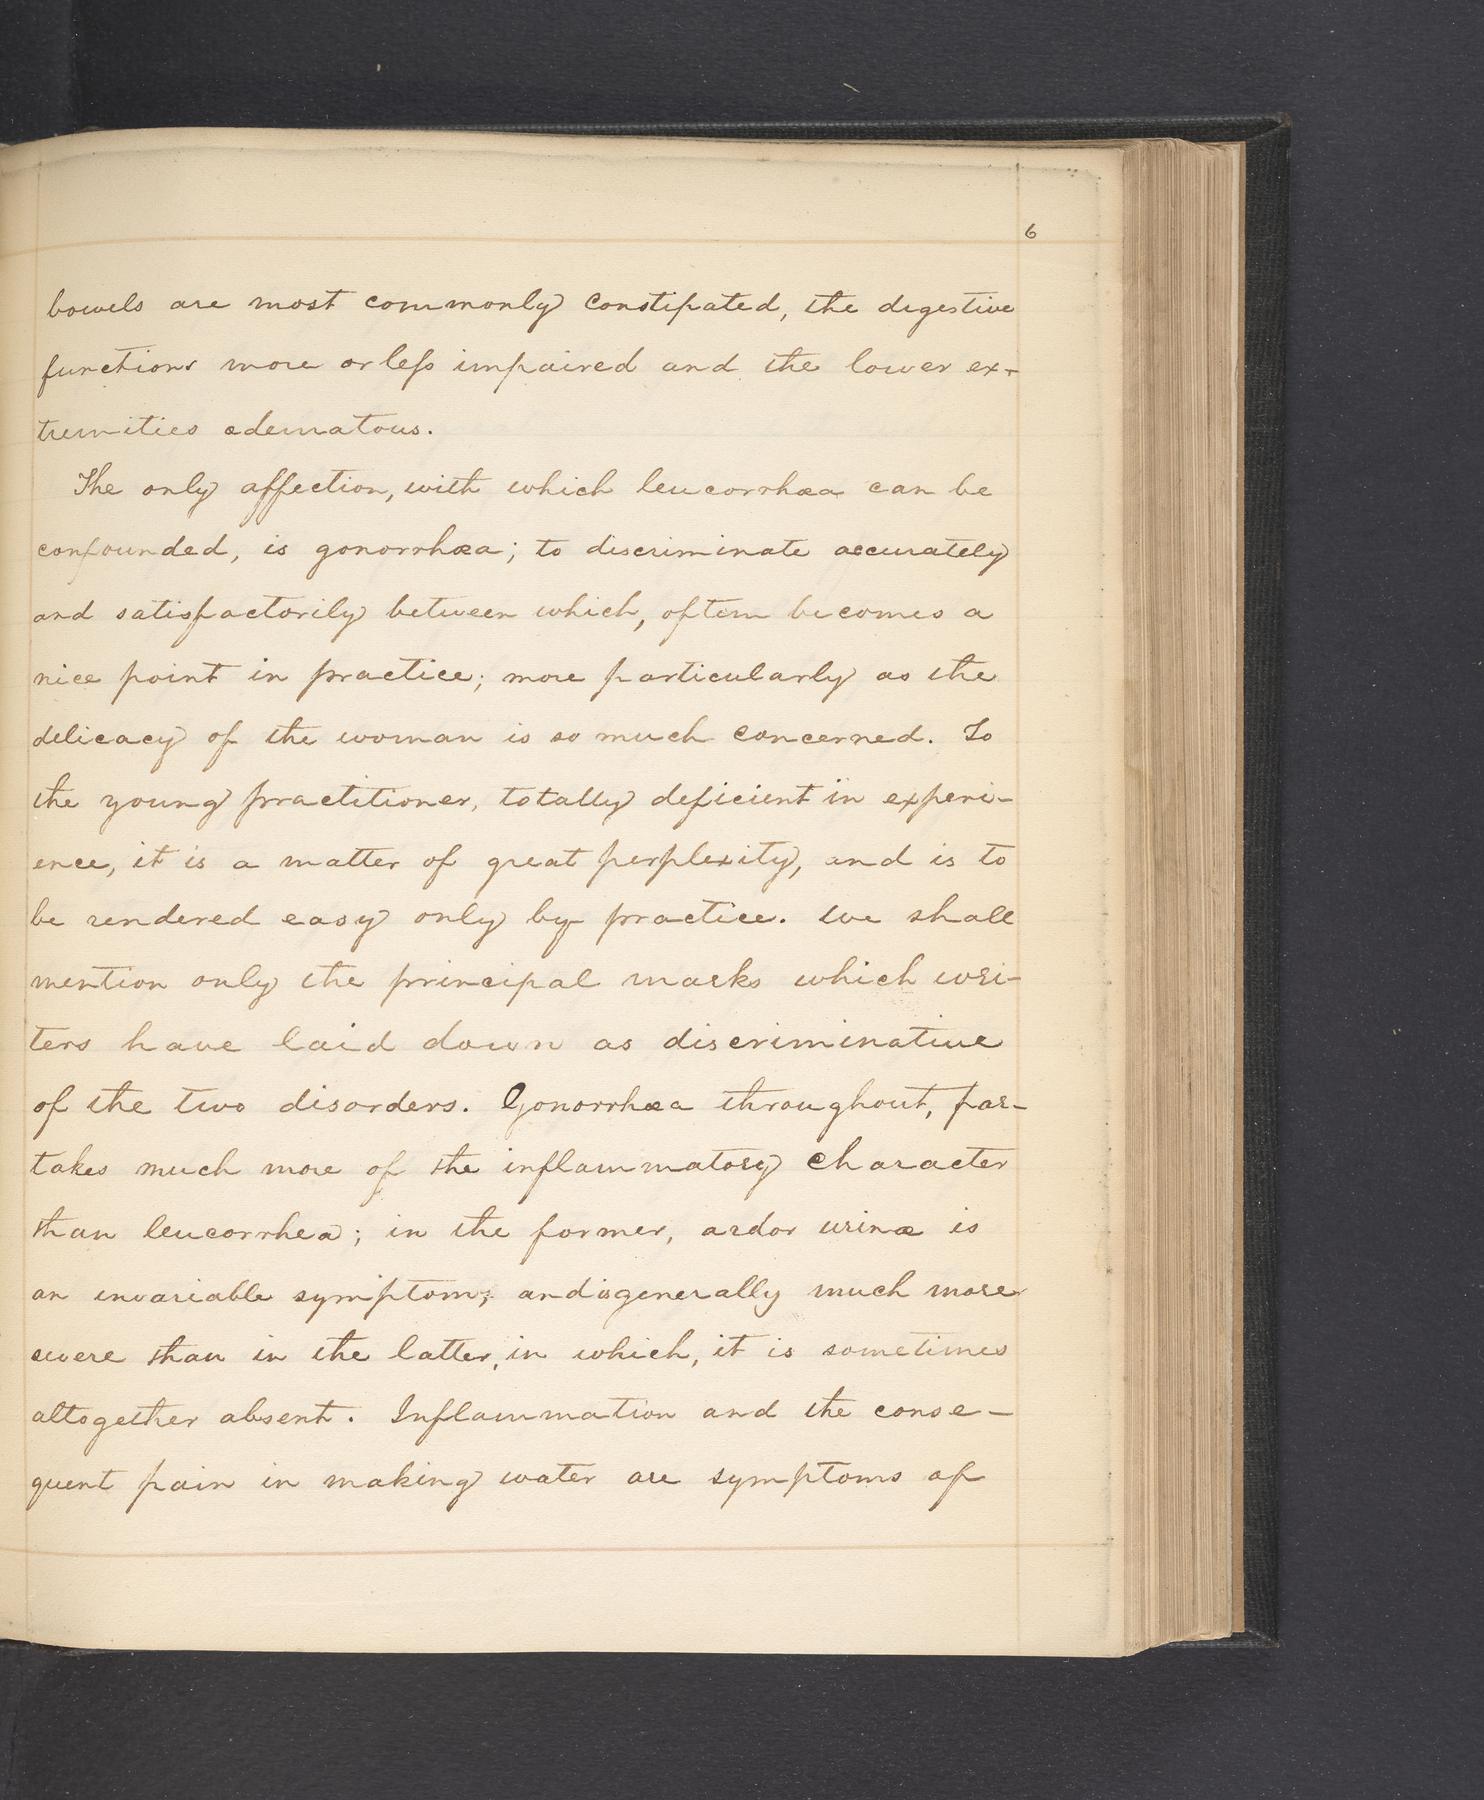 6
bowels are most commonly constipated, the digestive
functions more or less impaired and the lower ex-
tremities œdematous.
The only affection, with which leucorrhœa can be
confounded, is gonorrhœa; to discriminate accurately
and satisfactorily between which, often becomes a
nice point in practice; more particularly as the
delicacy of the woman is so much concerned. To
the young practitioner, totally deficient in experi-
ence, it is a matter of great perplexity, and is to
be rendered easy only by practice. We shall
mention only the principal marks which wri-
ters have laid down as discriminative
of the two disorders. Gonorrhœa throughout, par-
takes much more of the inflammatory character
than leucorrhea; in the former, ardor urinæ is
an invariable symptom; and is generally much more
severe than in the latter, in which, it is sometimes
altogether absent. Inflammation and the conse-
quent pain in making water are symptoms of